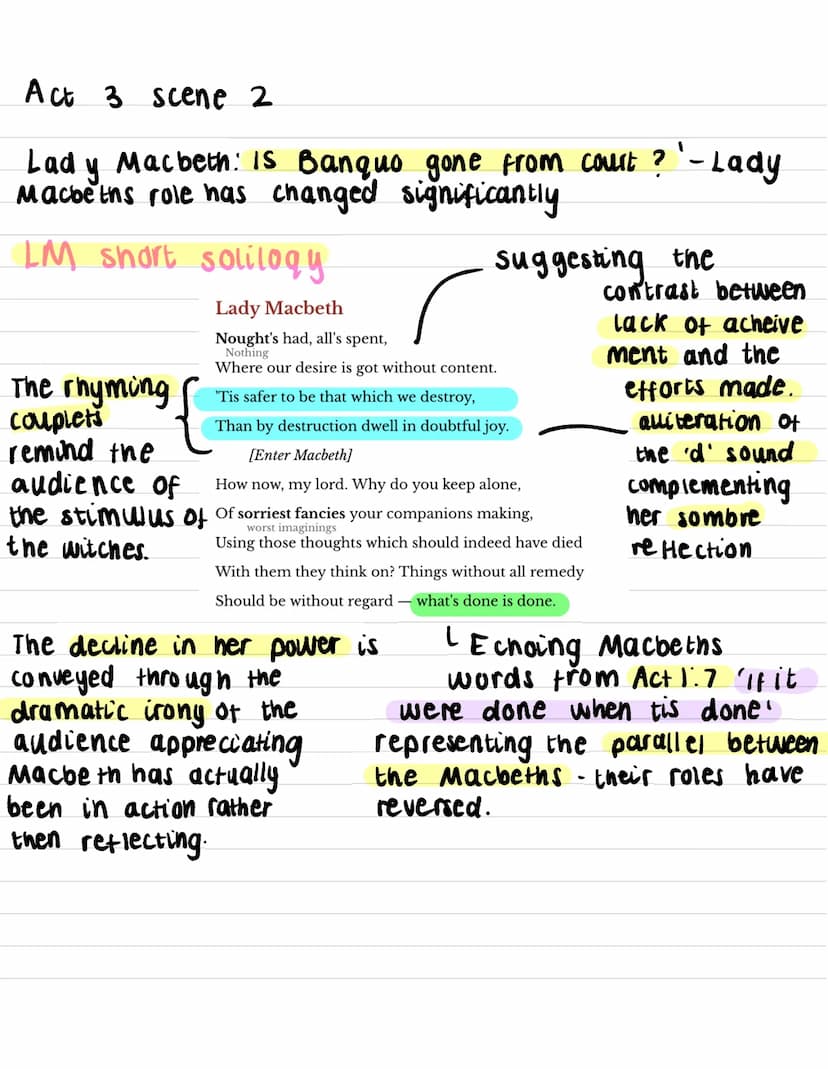 Act 3 scene 2
Lady Macbeth: Is Banquo gone from court?' - Lady
Macbeths role has changed significantly
LM short soliloqy
suggesting the
contrast between
lack of acheive
ment and the
efforts made.
Lady Macbeth
Nought's had, all's spent,
Nothing
Where our desire is got without content.
'Tis safer to be that which we destroy,
Than by destruction dwell in doubtful joy.
[Enter Macbeth]
How now, my lord. Why do you keep alone,
Of sorriest fancies your companions making,
worst imaginings
Using those thoughts which should indeed have died
With them they think on? Things without all remedy
Should be without regard — what's done is done.
The rhyming
couplets
remind the
audience of
the stimulus of
the witches.
alliteration of
the 'd' sound
complementing
her sombre
reflection
The decline in her power is
conveyed through the
dramatic irony of the
audience appreciating
Macbeth has actually
been in action rather
then reflecting.
Echoing Macbeths
words from Act 1.7 'If it
were done when tis done'
representing the parallel between
the Macbeths - their roles have
reversed.